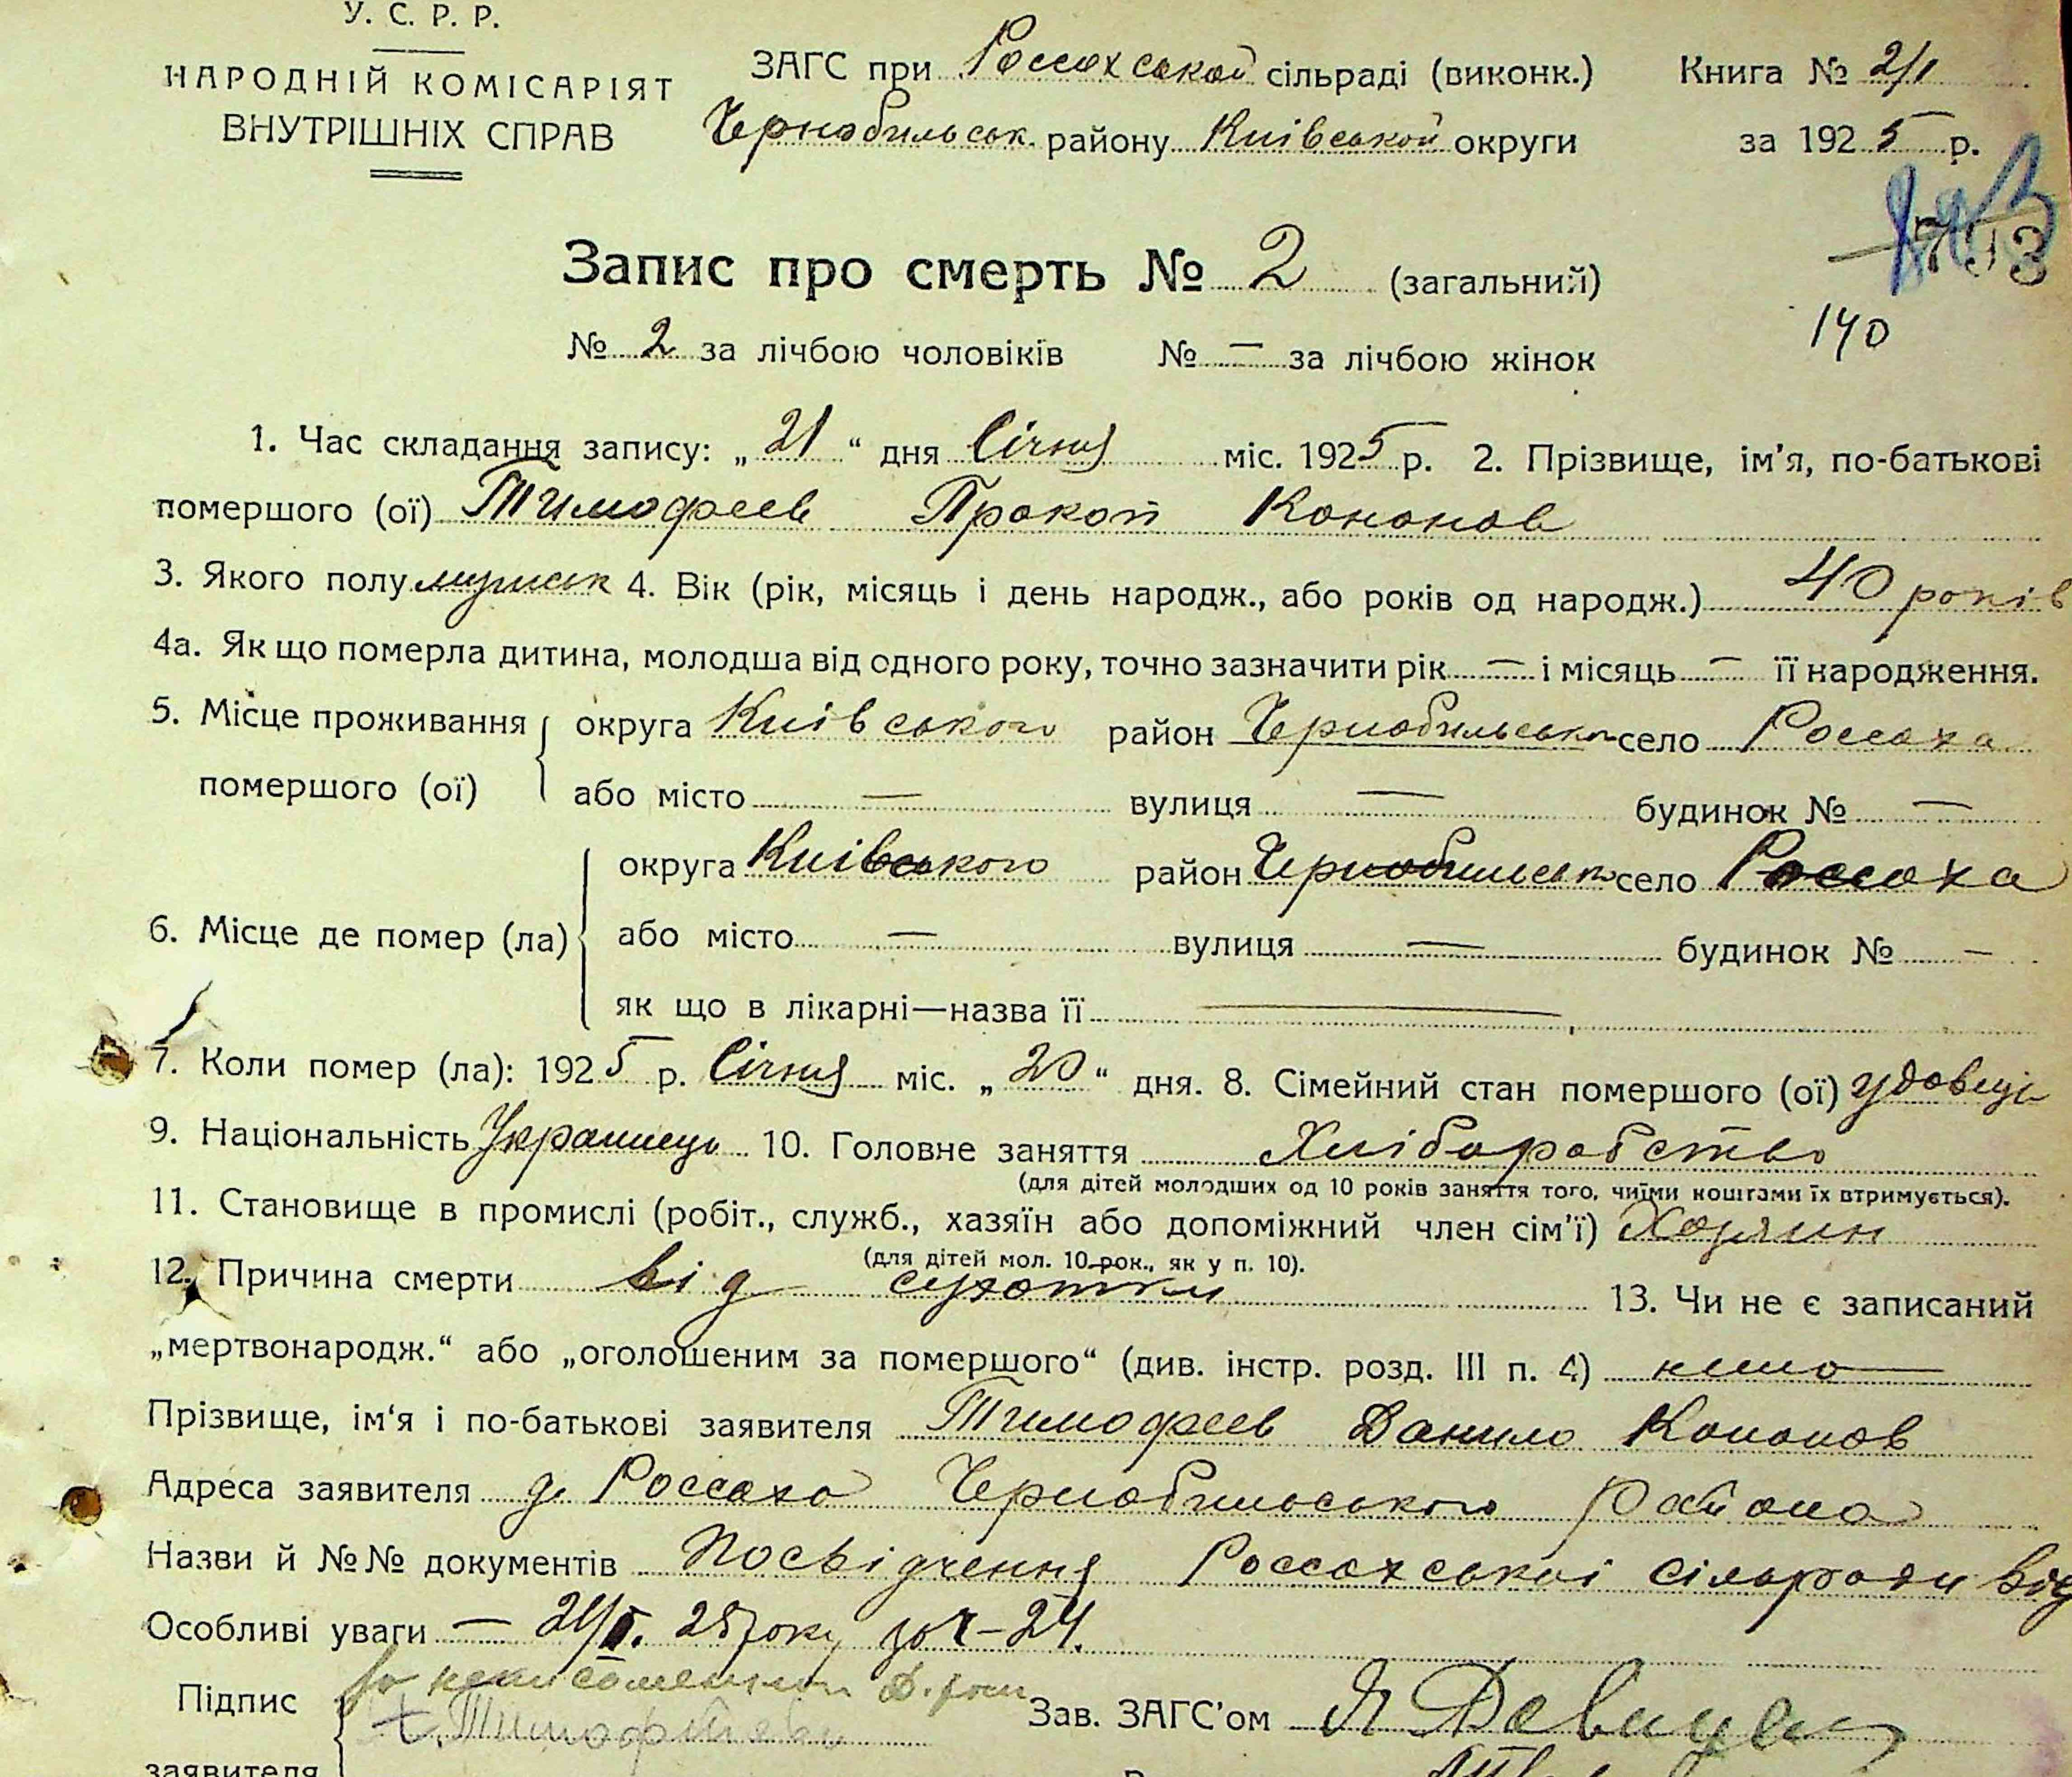 У. С. Р. Р.
НАРОДНІЙ КОМІСАРІЯТ
ВНУТРІШНІХ СПРАВ
ЗАГС при Россохськой сільраді (виконк.)
Чернобильськ. району Київської округи
Книга № 2/1
за 1925 р.
Запис про смерть № 2 (загальний)
140
№ 2 за лічбою чоловіків № — за лічбою жінок
1. Час складання запису: „21“ дня Січня міс. 1925 р. 2. Прізвище, ім’я, по-батькові
помершого (ої) Тимофеев Прокоп Кононов
3. Якого полу мужськ 4. Вік (рік, місяць і день народж., або років од народж.) 40 років
4а. Як що померла дитина, молодша від одного року, точно зазначити рік — і місяць — її народження.
5. Місце проживання помершого (ої) округа Київського район Чернобильськ село Россоха
або місто — вулиця — будинок № —
6. Місце де помер (ла) округа Київського район Чернобильськ село Россоха
або місто — вулиця — будинок № —
як що в лікарні—назва її —
7. Коли помер (ла): 1925 р. Січня міс. „20“ дня. 8. Сімейний стан помершого (ої) удовець
9. Національність Українець 10. Головне заняття Хліборобство
(для дітей молодших од 10 років заняття того, чиїми коштами їх втримується).
11. Становище в промислі (робіт., служб., хазяїн або допоміжний член сім’ї) Хозяин
(для дітей мол. 10 рок., як у п. 10).
12. Причина смерти від сухотки 13. Чи не є записаний
„мертвонародж.“ або „оголошеним за помершого“ (див. інстр. розд. III п. 4)
Прізвище, ім‘я і по-батькові заявителя Тимофеев Данило Кононов
Адреса заявителя д. Россохо Чернобильського Района
Назви й №№ документів Посвідчення Россохської сільради від
Особливі уваги — 21/I. 25 року за ч–24.
Підпис
заявителя
Зав. ЗАГС’ом